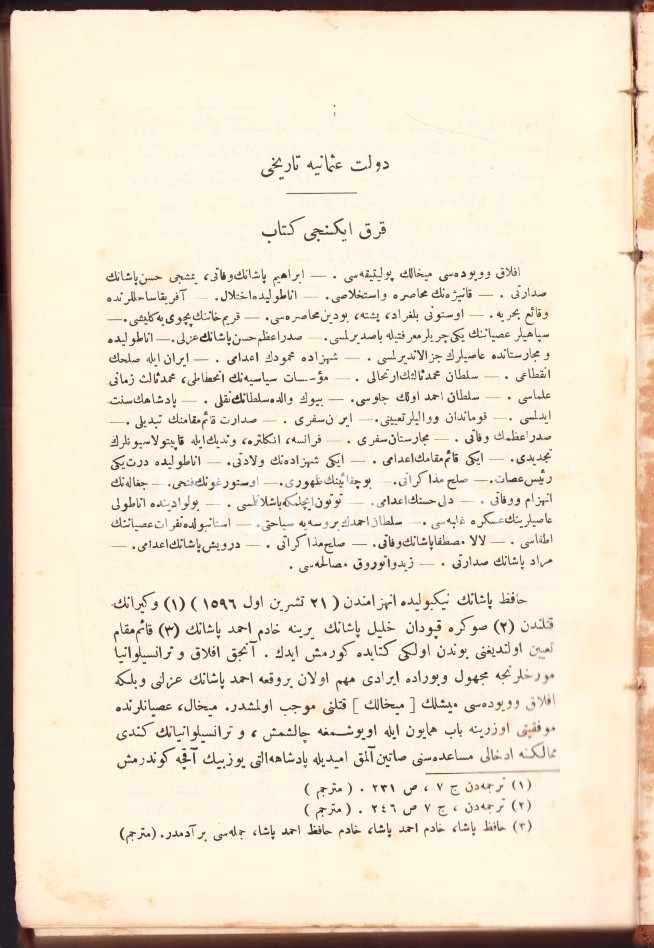 دولت عثمانیه تاریخی
قرق ایکنجی کتاب
افلاق وویوده‌سی میخالك پولیتیقه‌سی . — ابراهیم پاشانك وفاتی، یمشجی حسن پاشانك
صدارتی . — قانیژه‌نك محاصره و استخلاصی . — اناطولیده اختلال . — آفریقا ساحللرنده
وقائع بحریه . — اوستونی بلغراد، پشته، بودین محاصره‌سی . — قریم خاننك پچوی یه کلیشی . —
سپاهیلر عصیاننك یکی چریلر معرفتیله باصدیرلمسی . — صدر اعظم حسن پاشانك عزلی . — اناطولیده
و مجارستانده عاصیلرك جزالاندیرلمسی . — شهزاده محمودك اعدامی . — ایران ایله صلحك
انقطاعی . — سلطان محمد ثالثك ارتحالی . — مؤسسات سیاسیه‌نك انحطاطی، محمد ثالث زمانی
علماسی . — سلطان احمد اولك جلوسی . — بیوك والده سلطانك نقلی . — پادشاهك سنت
ایدلمسی . — قوماندان ووالیلر تعیینی . — ایران سفری . — صدارت قائم‌مقامنك تبدیلی . —
صدر اعظمك وفاتی . — مجارستان سفری . — فرانسه، انکلتره، وندیك ایله قاپیتولاسیونلرك
تجدیدی . — ایکی قائم‌مقامك اعدامی . — ایکی شهزاده‌نك ولادتی . — اناطولیده درت یکی
رئیس عصات . — صلح مذاکراتی . — بوچقائینك ظهوری . — اوسترغونك فتحی . — جغاله‌نك
انهزام ووفاتی . — دلی حسنك اعدامی . — توتون ایچلمکه باشلانلمسی . — بولوادینده اناطولی
عاصیلرینك عسکره غلبه‌سی . — سلطان احمدك بروسه‌یه سیاحتی . — استانبولده نفرات عصیاننك
اطفاسی . — لالا مصطفا پاشانك وفاتی . — صلح مذاکراتی . — درویش پاشانك اعدامی . —
مراد پاشانك صدارتی . — زیدواتوروق مصالحه‌سی .
حافظ پاشانك نیکبولیده انهزامندن ( ٢١ تشرین اول ١٥٩٦ ) (١) وکیرانك
قتلندن (٢) صوکره قپودان خلیل پاشانك یرینه خادم احمد پاشانك (٣) قائم‌مقام
تعیین اولندیغنی بوندن اولکی کتابده کورمش ایدك . آنجق افلاق و ترانسیلوانیا
مورخلرنجه مجهول وبوراده ایرادی مهم اولان بروقعه احمد پاشانك عزلنی وبلکه
افلاق وویوده‌سی میشلك [ میخالك ] قتلنی موجب اولمشدر. میخال، عصیانلرنده
موفقیتی اوزرینه باب همایون ایله اویوشمغه چالشمش ، و ترانسیلوانیانك کندی
ممالکنه ادخالی مساعده‌سنی صاتین آلمق امیدیله پادشاهه‌التی یوزبیك آقچه کوندرمش
(١) ترجمه‌دن ج ٧ ، ص ٢٣١ . ( مترجم )
(٢) ترجمه‌دن ، ج ٧ ص ٢٤٦ . ( مترجم )
(٣) حافظ پاشا، خادم احمد پاشا، خادم حافظ احمد پاشا، جمله‌سی بر آدمدر. (مترجم)